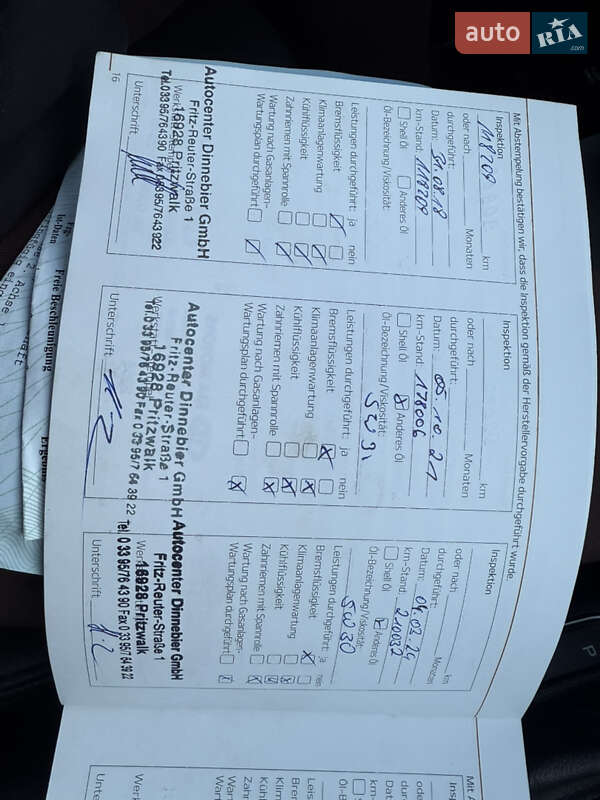 auto RIA .com
16
Mit Abstempelung bestätigen wir, dass die Inspektion gemäß der Herstellervorgabe durchgeführt wurde.
Inspektion
118209 km
oder nach Monaten
durchgeführt:
Datum: 31.08.18
km-Stand: 118209
Shell Öl Anderes Öl
Öl-Bezeichnung/Viskosität:
Leistungen durchgeführt: ja nein
Bremsflüssigkeit
Klimaanlagenwartung
Kühlflüssigkeit
Zahnriemen mit Spannrolle
Wartung nach Gasanlagen-
Wartungsplan durchgeführt
Autocenter Dinnebier GmbH
Fritz-Reuter-Straße 1
16928 Pritzwalk
Tel.03395/764390 Fax 03395/7643922
Unterschrift
Inspektion
km
oder nach Monaten
durchgeführt:
Datum: 05.10.21
km-Stand: 178006
Shell Öl Anderes Öl
Öl-Bezeichnung/Viskosität:
Leistungen durchgeführt: ja nein
Bremsflüssigkeit
Klimaanlagenwartung
Kühlflüssigkeit
Zahnriemen mit Spannrolle
Wartung nach Gasanlagen-
Wartungsplan durchgeführt
Autocenter Dinnebier GmbH
Fritz-Reuter-Straße 1
16928 Pritzwalk
Tel.03395/764390 Fax 03395/7643922
Unterschrift
Inspektion
km
oder nach Monaten
durchgeführt:
Datum: 04.03.24
km-Stand: 210032
Shell Öl Anderes Öl
Öl-Bezeichnung/Viskosität:
5W30
Leistungen durchgeführt: ja nein
Bremsflüssigkeit
Klimaanlagenwartung
Kühlflüssigkeit
Zahnriemen mit Spannrolle
Wartung nach Gasanlagen-
Wartungsplan durchgeführt
Autocenter Dinnebier GmbH
Fritz-Reuter-Straße 1
16928 Pritzwalk
Tel. 03395/764390 Fax 03395/7643922
Unterschrift
Freie Bescheinigung
P